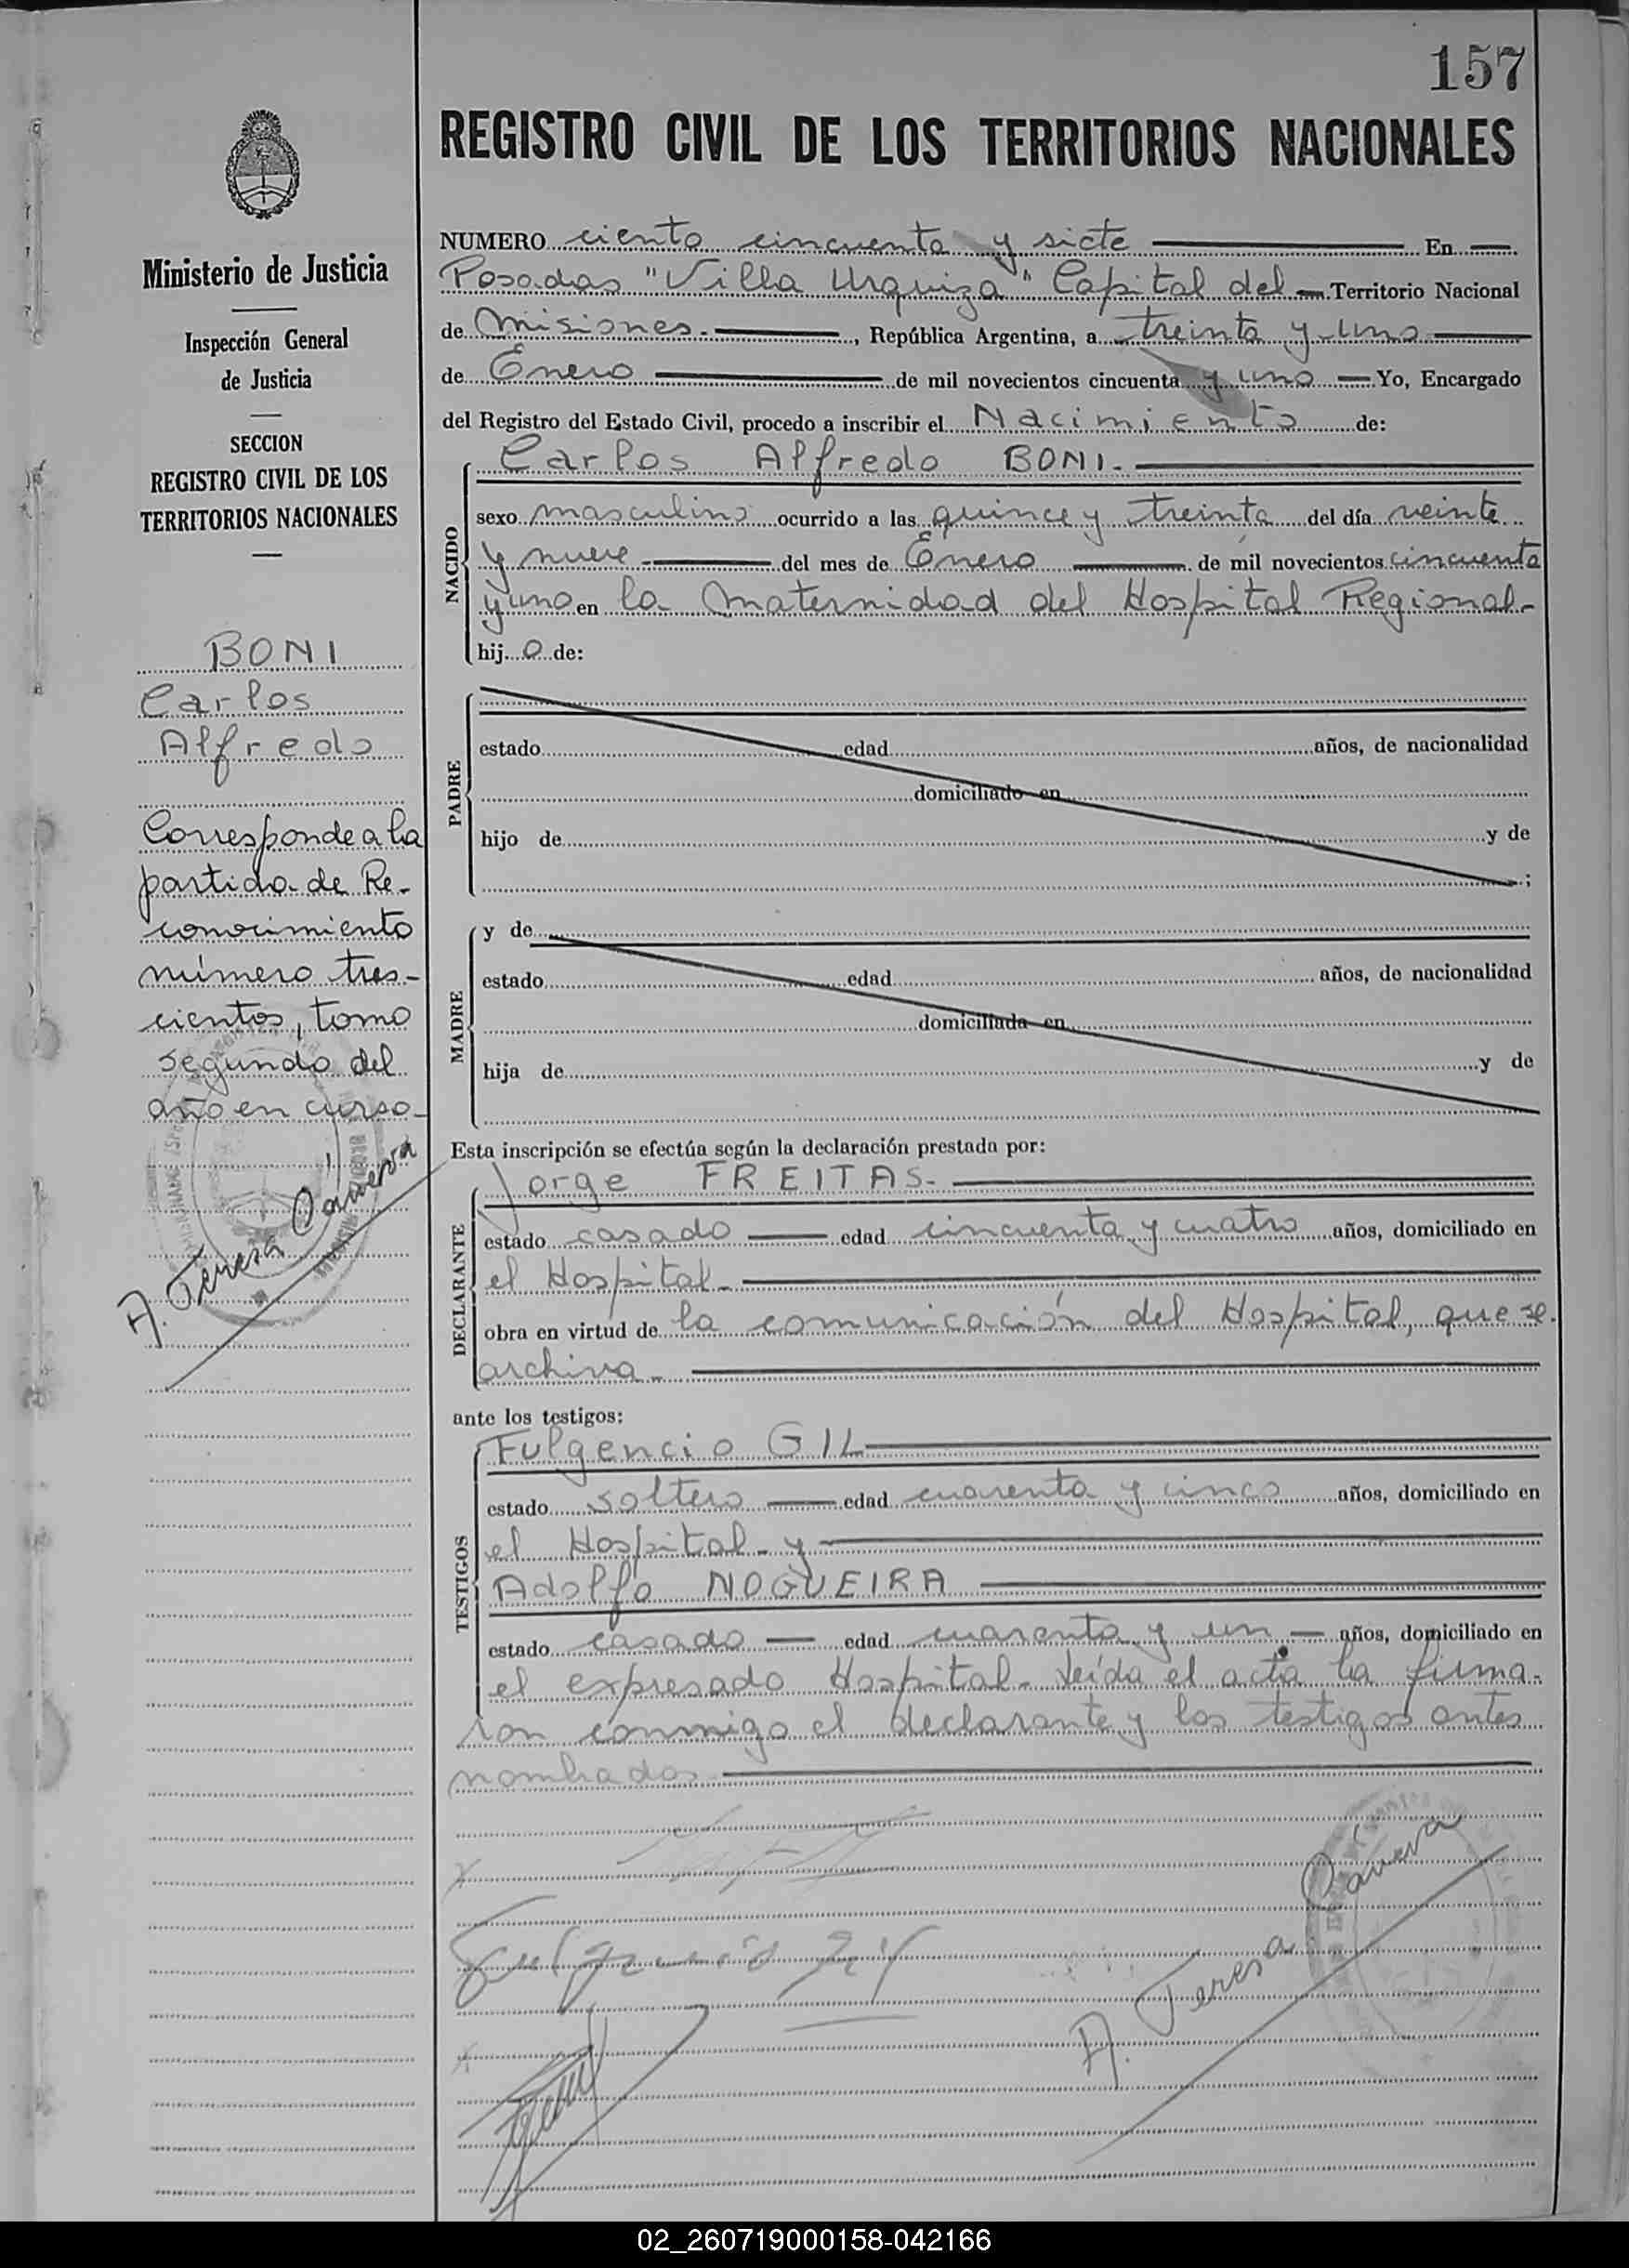 157
REGISTRO CIVIL DE LOS TERRITORIOS NACIONALES
Ministerio de Justicia
Inspección General
de Justicia
SECCION
REGISTRO CIVIL DE LOS
TERRITORIOS NACIONALES
BONI
Carlos
Alfredo
Corresponde a la
partida de Re-
conocimiento
número tres-
cientos, tomo
segundo del
año en curso-
A. Teresa
NUMERO ciento cincuenta y siete En
Posadas "Villa Urquiza" Capital del Territorio Nacional
de Misiones.-, República Argentina, a treinta y uno
de Enero de mil novecientos cincuenta y uno Yo, Encargado
del Registro del Estado Civil, procedo a inscribir el Nacimiento de:
Carlos Alfredo BONI.-
NACIDO
sexo masculino ocurrido a las quince y treinta del día veinte
y nueve del mes de Enero de mil novecientos cincuenta
y uno en la Maternidad del Hospital Regional-
hij o de:
PADRE
estado edad años, de nacionalidad
domiciliado en
hijo de y de
;
MADRE
y de
estado edad años, de nacionalidad
domiciliada en
hija de y de
Esta inscripción se efectúa según la declaración prestada por:
Jorge FREITAS.-
DECLARANTE
estado casado edad cincuenta y cuatro años, domiciliado en
el Hospital-
obra en virtud de la comunicación del Hospital, que se
archiva-
ante los testigos:
Fulgencio GIL
TESTIGOS
estado soltero edad cuarenta y cinco años, domiciliado en
el Hospital- y
Adolfo NOGUEIRA
estado casado edad cuarenta y un años, domiciliado en
el expresado Hospital- Leída el acta la firma-
ron conmigo el declarante y los testigos antes
nombrados
Fulgencio Gil
A. Teresa
02_260719000158-042166